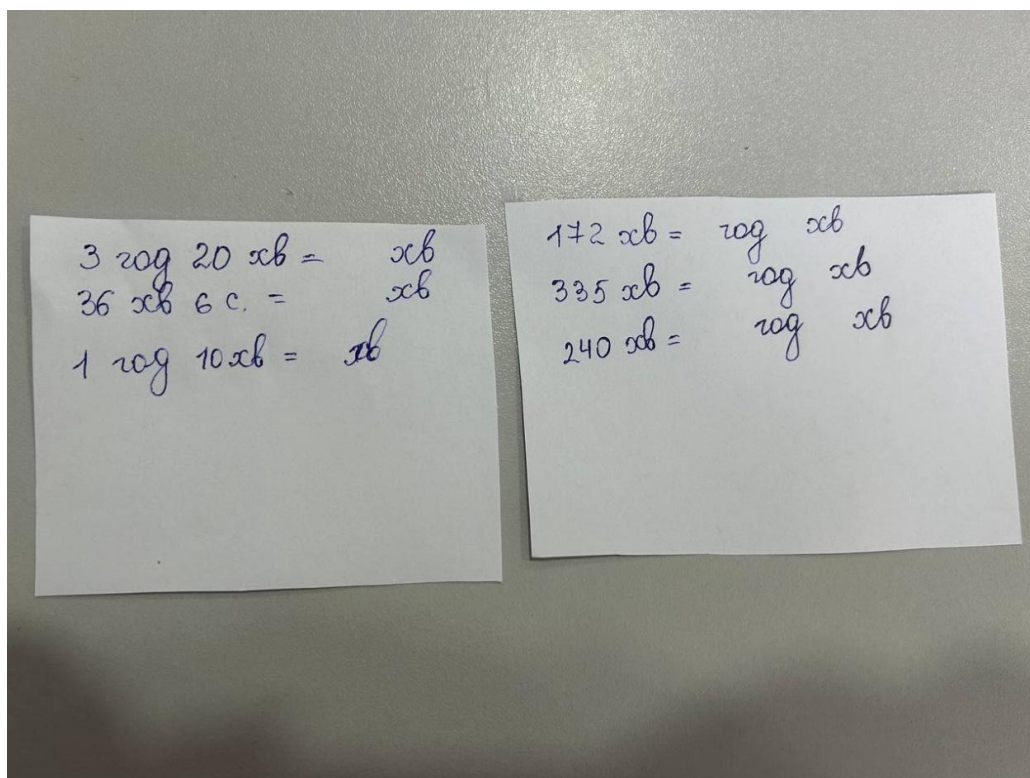 3 год 20 хв = хв
36 хв 6 с. = хв
1 год 10 хв = хв
172 хв = год хв
335 хв = год хв
240 хв = год хв